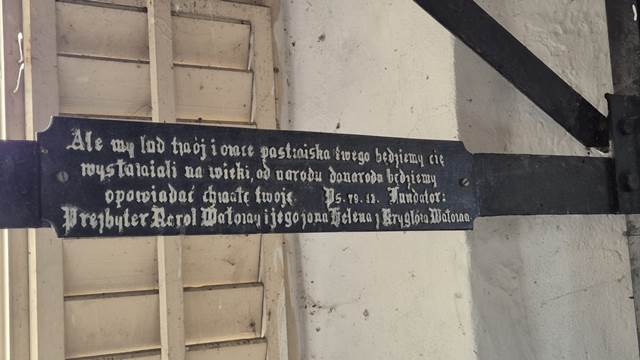 Ale my lud twój i owce pastwiska twego będziemy cię
wysławiali na wieki, od narodu donarodu będziemy
opowiadać chwałę twoję Ps. 79. 13. Fundator:
Prezbyter Karol Watoray i jego żona Helena z Kryglów Watoray